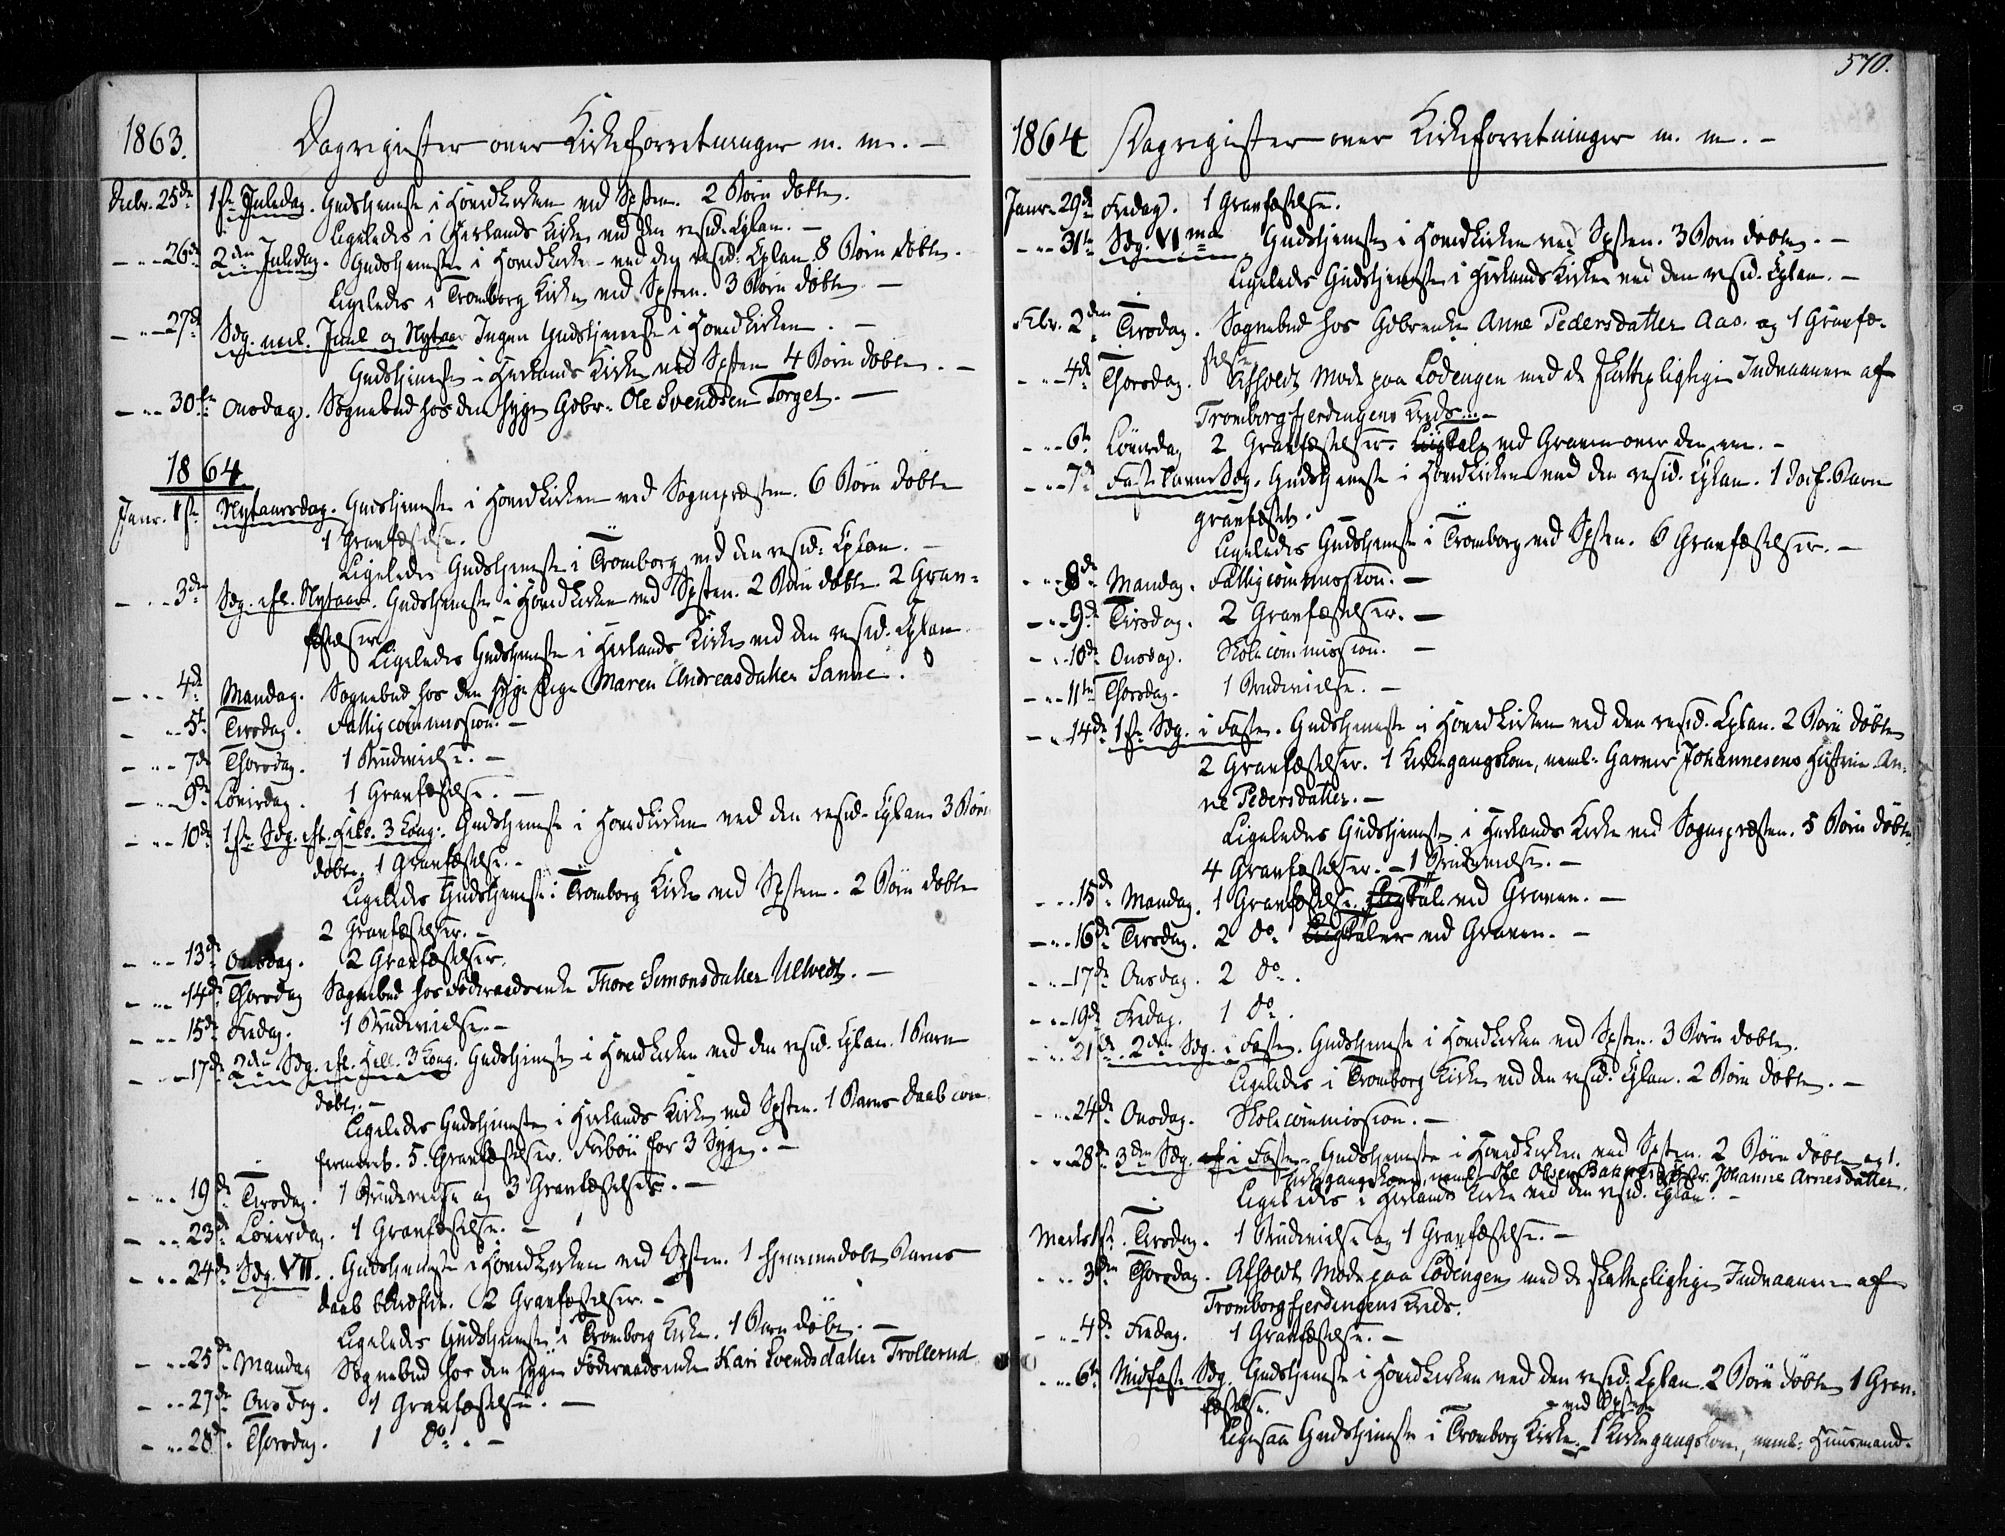 1863. Dagregister over Kirkeforretninger m. m. –
Decbr. 25de 1ste Juledag. Gudstjeneste i Hovedkirken ved Spsten. 2 Børn døbte.
Ligeledes i Herlands Kirke ved den resid. Cplan. –
– „ – 26de 2den Juledag. Gudstjeneste i Hovedkirke – ved den resid: Cplan 8 Børn døbte. –
Ligeledes i Tromborg Kirke ved Spsten. 3 Børn døbte –
– „ – 27de Sdg. mel. Juul og Nytaar Ingen Gudstjeneste i Hovedkirken. –
Gudstjeneste i Herlands Kirke ved Spsten 4 Børn døbte. –
– „ – 30te Onsdag. Sognebud hos den syge Gdbr. Ole Svendsen Torget. –
1864
Janr. 1ste Nytaarsdag. Gudstjeneste i Hovedkirken ved Sognepræsten. 6 Børn døbte
1 Gravfæstelse.
Ligeledes Gudstjeneste i Tromborg ved den resid: Cplan. –
– „ – 3de Sdg. eft. Nytaar. Gudstjeneste i Hovedkirken ved Spsten. 2 Børn døbte. 2 Grav=
fæstelser
Ligeledes Gudstjeneste i Herlands Kirke ved den resid. Cplan
– „ – 4de Mandag. Sognebud hos den syge Pige Maren Andreasdatter Sanne.
– „ – 5te Tirsdag. Fattigcommission. –
– „ – 7de Thorsdag. 1 Brudevielse. –
– „ – 9de Løverdag. 1 Gravfæstelse. –
– „ – 10de 1ste Sdg. eft. Hell. 3 Kong. Gudstjeneste i Hovedkirken ved den resid. Cplan 3 Børn
døbte. 1 Gravfæstelse. –
Ligeledes Gudstjeneste i Tromborg Kirke ved Spsten. 2 Børn døbte
2 Gravfæstelser. –
– „ – 13de Onsdag. 2 Gravfæstelser.
– „ – 14de Thorsdag Sognebud hos Føderaadsenke Thore Simonsdatter Ulltvedt. –
– „ – 15de Fredag. 1 Brudevielse. –
– „ – 17de 2den Sdg. eft. Hell. 3 Kong. Gudstjeneste i Hovedkirken ved den resid. Cplan. 1 Barn
døbt. –
Ligeledes Gudstjeneste i Herlands Kirke ved Spsten. 1 Barns Daab con
firmeret. 5 Gravfæstelser. Forbøn for 3 Syge. –
– „ – 19de Tirsdag. 1 Brudevielse og 3 Gravfæstelser. –
– „ – 23de Løverdag. 1 Gravfæstelse. –
– „ – 24de Sdg. VII. Gudstjeneste i Hovedkirken ved Spsten. 1 hjemmedøbt Barns
Daab bekræftet. 2 Gravfæstelser. –
Ligeledes Gudstjeneste i Tromborg Kirke. 1 Barn døbt. –
– „ – 25de Mandag Sognebud hos den syge Føderaadsenke Kari Svendsdatter Trollerud
– „ – 27de Onsdag. 1 Gravfæstelse. –
– „ – 28de Thorsdag. 1 do. –
570.
1864 Dagregister over Kirkeforretninger m. m. –
Janr. 29de Fredag. 1 Gravfæstelse.
– „ – 31te Sdg. VIma Gudstjeneste i Hovedkirken ved Spsten. 3 Børn døbte. –
Ligeledes Gudstjeneste i Herlands Kirke ved den resid. Cplan. –
Febr. 2den Tirsdag. Sognebud hos Gdbrenke Anne Pedersdatter Aas. og 1 Gravfæ=
stelse
– „ – 4de Thorsdag. Afholdt Møde paa Lødengen med de skattepligtige Indvaanere af
Tromborgfjerdingens Kreds. –
– „ – 6te Løverdag 2 Gravfæstelser. Liigtale ved Graven over den ene. –
– „ – 7de Fastelavns Sdg. Gudstjeneste i Hovedkirken ved den resid. Cplan. 1 Barn
gravfæstet. –
Ligeledes Gudstjeneste i Tromborg ved Spsten. 6 Gravfæstelser. –
– „ – 8de Mandag. Fattigcommission. –
– „ – 9de Tirsdag. 2 Gravfæstelser. –
– „ – 10de Onsdag. Skolecommission. –
– „ – 11te Thorsdag. 1 Brudevielse. –
– „ – 14de 1ste Sdg. i Faste. Gudstjeneste i Hovedkirken ved den resid. Cplan. 2 Børn døbte
2 Gravfæstelser. 1 Kirkegangskone, neml. Garver Johannesens Hustrue An=
ne Pedersdatter. –
Ligeledes Gudstjeneste i Herlands Kirke ved Sognepræsten. 5 Børn døbte.
4 Gravfæstelser. – 1 Brudevielse. –
– „ – 15de Mandag. 1 Gravfæstelse. Liigtale ved Graven. –
– „ – 16de Tirsdag. 2 do. Liigtaler ved Graven. –
– „ – 17de Onsdag. 2 do.
– „ – 19de Fredag. 1 do.
– „ – 21de 2den Sdg. i Faste. Gudstjeneste i Hovedkirken ved Spsten. 3 Børn døbte.
Ligeledes i Tromborg Kirke ved den resid. Cplan. 2 Børn døbte. –
– „ – 24de Onsdag. Skolecommission. –
– „ – 28de 3die Sdg. i Faste. Gudstjeneste i Hovedkirken ved Spsten. 2 Børn døbte og 1.
Kirkegangskone, neml. Ole Olsen Johanne Arnesdatter.
Ligeledes i Herlands Kirke ved den resid. Cplan. –
Marts 1ste Tirsdag. 1 Brudevielse og 1 Gravfæstelse. –
– „ – 3die Thorsdag. Afholdt Møde paa Lødengen med de skattepligtige Indvaanere af
Tromborgfjerdingens Kreds.
– „ – 4de Fredag. 1 Gravfæstelse. –
– „ – 6te Midfaste Sdg. Gudstjeneste i Hovedkirken ved den resid. Cplan. 2 Børn døbte 1 Grav=
fæstelse.
– ved Spsten
Ligesaa Gudstjeneste i Tromborg Kirke. 1 Kirkegangskone, neml: Huusmand=